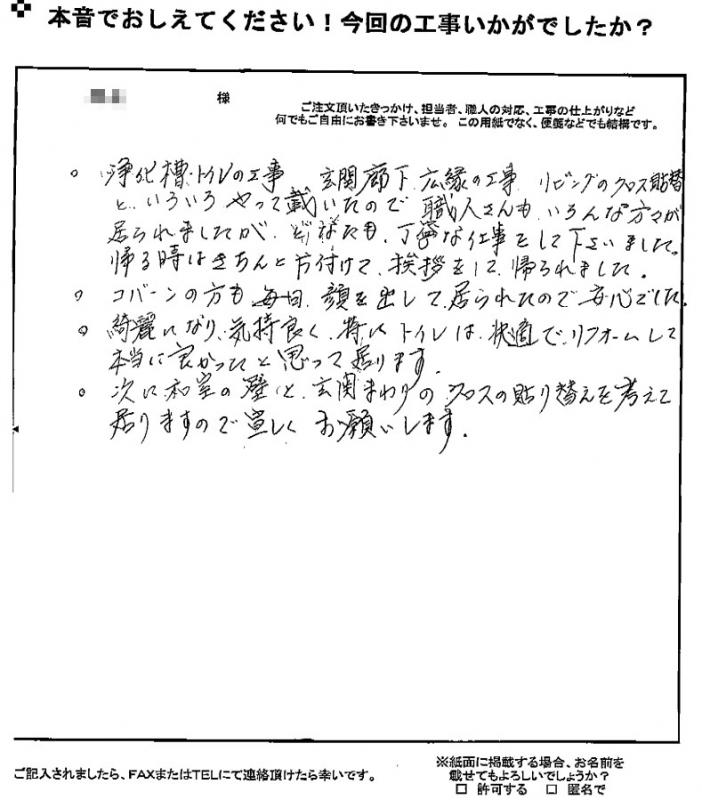 本音でおしえてください！今回の工事いかがでしたか？
様
ご注文頂いたきっかけ、担当者、職人の対応、工事の仕上がりなど
何でもご自由にお書き下さいませ。この用紙でなく、便箋などでも結構です。
。浄化槽・トイレの工事 玄関廊下、広縁の工事 リビングのクロス貼替
と、いろいろ やって戴いたので 職人さんも、いろんな方々が
居られましたが、どなたも、丁寧な仕事をして下さいました。
帰る時はきちんと片付けて、挨拶をして、帰られました。
。コバーンの方も 毎日、顔を出して、居られたので 安心でした。
。綺麗になり、気持良く、特に トイレは、快適で、リフォームして
本当に良かったと思って居ります。
。次に和室の壁と、玄関まわりの クロスの貼り替えを考えて
居りますので宜しく お願いします。
ご記入されましたら、FAXまたはTELにて連絡頂けたら幸いです。
※紙面に掲載する場合、お名前を
載せてもよろしいでしょうか？
□ 許可する □ 匿名で